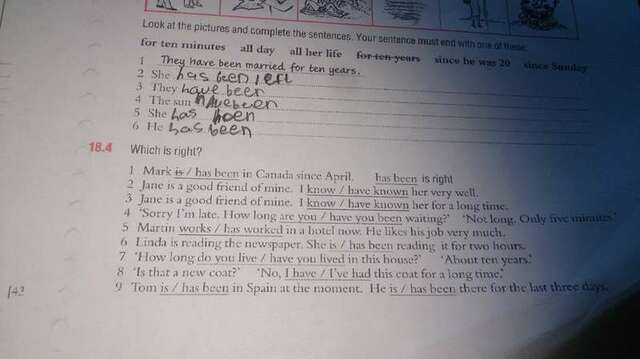 Look at the pictures and complete the sentences. Your sentence must end with one of these:
for ten minutes all day all her life for ten years since he was 20 since Sunday
1 They have been married for ten years.
2 She has been
3 They have been
4 The sun havebeen
5 She has been
6 He has been
18.4 Which is right?
1 Mark is / has been in Canada since April. has been is right
2 Jane is a good friend of mine. I know / have known her very well.
3 Jane is a good friend of mine. I know / have known her for a long time.
4 'Sorry I'm late. How long are you / have you been waiting?' 'Not long. Only five minutes.'
5 Martin works / has worked in a hotel now. He likes his job very much.
6 Linda is reading the newspaper. She is / has been reading it for two hours.
7 'How long do you live / have you lived in this house?' 'About ten years.'
8 'Is that a new coat?' 'No, I have / I've had this coat for a long time.'
9 Tom is / has been in Spain at the moment. He is / has been there for the last three days.